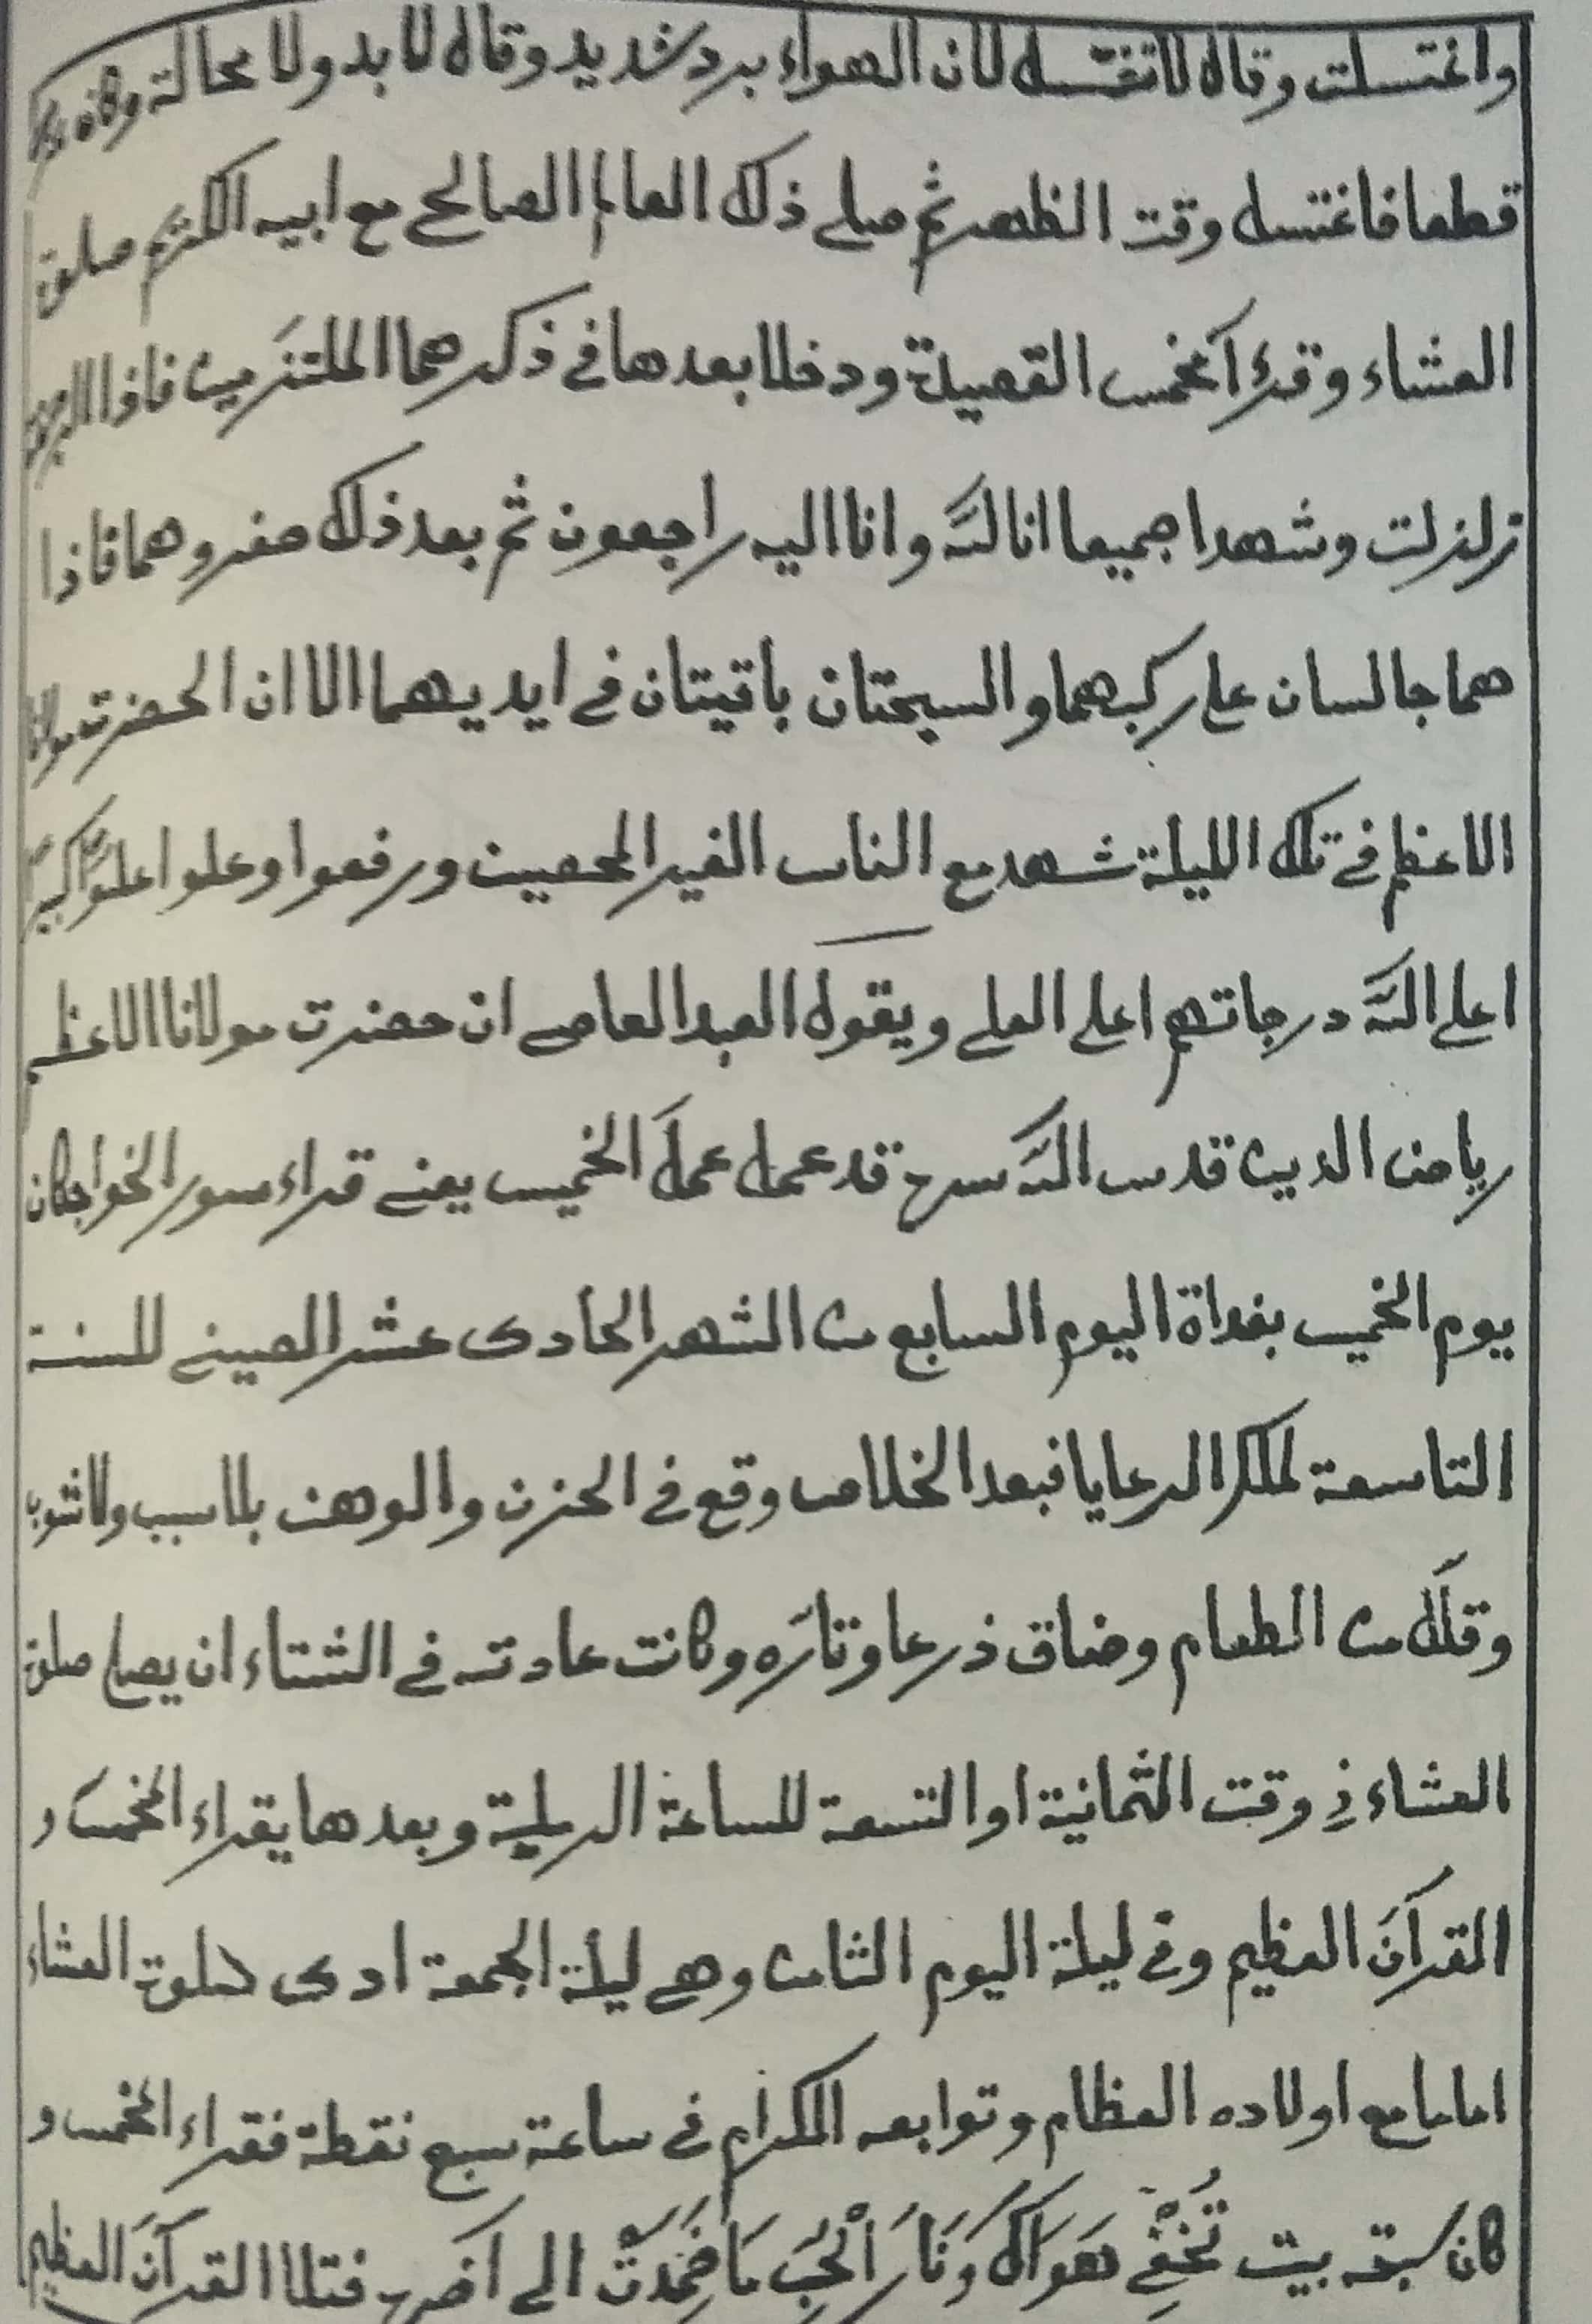 واغتسلت وقال لا تغتسل لان الهواء برد شديد وقال لا بد ولا محالة
قطعا فاغتسل وقت الظهر ثم صلى ذلك العالم الصالح مع ابيه الاكرم صلوة
العشاء وقرءا مخمس القصيدة ودخلا بعدها في ذكرهما الملتزمين فاذا
زلزلت وشهدا جميعا انا لله وانا اليه راجعون ثم بعد ذلك حفروهما فاذا
هما جالسان على ركبهما والسبحتان باقيتان في ايديهما الا ان الحضرت مولانا
الاعظم في تلك الليلة شهد مع الناس الغير المحصين ورفعوا وعلوا علوًّا كبيرًا
اعلى اللّٰه درجاتهم اعلى العلى ويقول العبد العاصى ان حضرت مولانا الاعظم
رياض الدين قدس اللّٰه سره قد عمل عمل الخميس يعنى قراء سور الخواجكان
يوم الخميس بغداة اليوم السابع من الشهر الحادى عشر الصينى للسنة
التاسعة لملكر الرعايا فبعد الخلاص وقع في الحزن والوهن بلا سبب ولا
وقلّل من الطعام وضاق ذرعا وتأرّه وكانت عادته في الشتاء ان يصلى صلوة
العشاء في وقت الثمانية او التسعة للساعة الرملية وبعدها يقراء المخمس و
القرآن العظيم وفى ليلة اليوم الثامن وهى ليلة الجمعة ادى صلوة العشاء
اماما مع اولاده العظام وتوابعه الكرام في ساعة سبع نقطة فقراء المخمس و
كان سبقه بيت تُخْفِى هَوَاكَ وَنَارَ الْحُبِّ مَا خَمِدَتْ الى آخره فتلا القرآن العظيم